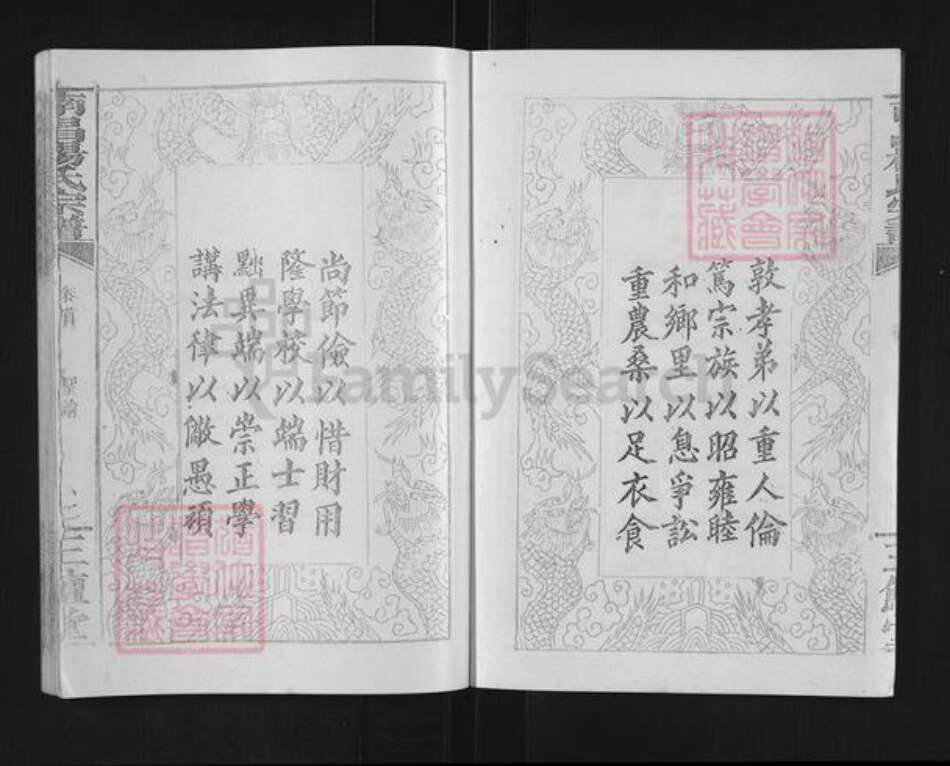 敦孝弟以重人倫
篤宗族以昭雍睦
和鄉里以息爭訟
重農桑以足衣食
尚節儉以惜財用
隆學校以端士習
黜異端以崇正學
講法律以儆愚頑
南昌楊氏宗譜
卷首
聖諭
FamilySearch